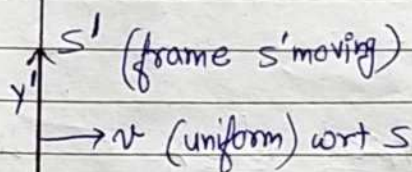 S' (frame s'moving)
y'
→ v (uniform) wrt S